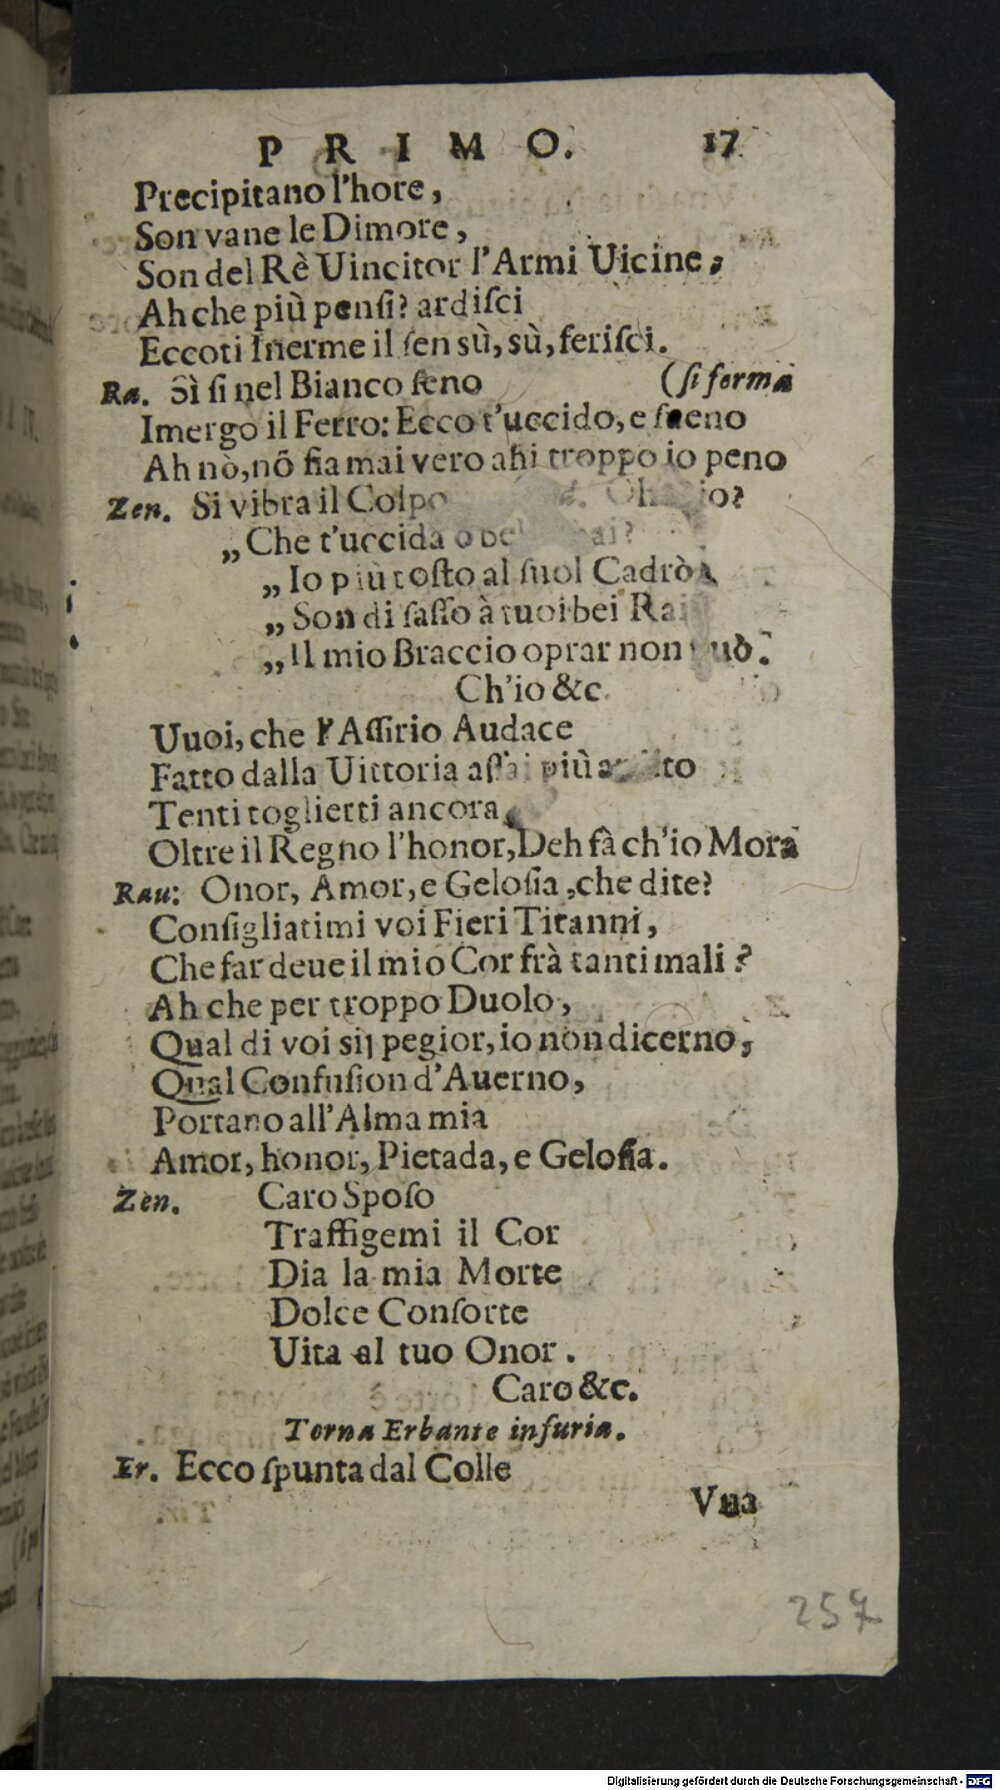 PRIMO. 17
Precipitano l'hore,
Son vane le Dimore,
Son del Rè Uincitor l'Armi Uicine,
Ah che più pensi? ardiſci
Eccoti Inerme il ſen sù, sù, feriſci.
Ra. Sì ſi nel Bianco ſeno (ſi ferma
Imergo il Ferro: Ecco t'uccido, e ſueno
Ah nò, nõ fia mai vero ahi troppo io peno
Zen. Si vibra il Colpo
„Che t'uccida o
„Io più toſto al ſuol Cadrò
„Son di ſaſſo à tuoi bei Rai
„Il mio Braccio oprar non può.
Ch'io &c.
Uuoi, che l'Aſſirio Audace
Fatto dalla Uittoria aſſai più
Tenti toglierti ancora
Oltre il Regno l'honor, Deh fà ch'io Mora
Rau: Onor, Amor, e Geloſia, che dite?
Conſigliatimi voi Fieri Titanni,
Che far deue il mio Cor frà tanti mali?
Ah che per troppo Duolo,
Qual di voi sij pegior, io non dicerno,
Qual Confuſion d'Auerno,
Portano all'Alma mia
Amor, honor, Pietada, e Geloſia.
Zen. Caro Spoſo
Traffigemi il Cor
Dia la mia Morte
Dolce Conſorte
Uita al tuo Onor.
Caro &c.
Torna Erbante infuria.
Er. Ecco ſpunta dal Colle
Vna
257
Digitalisierung gefördert durch die Deutsche Forschungsgemeinschaft - DFG